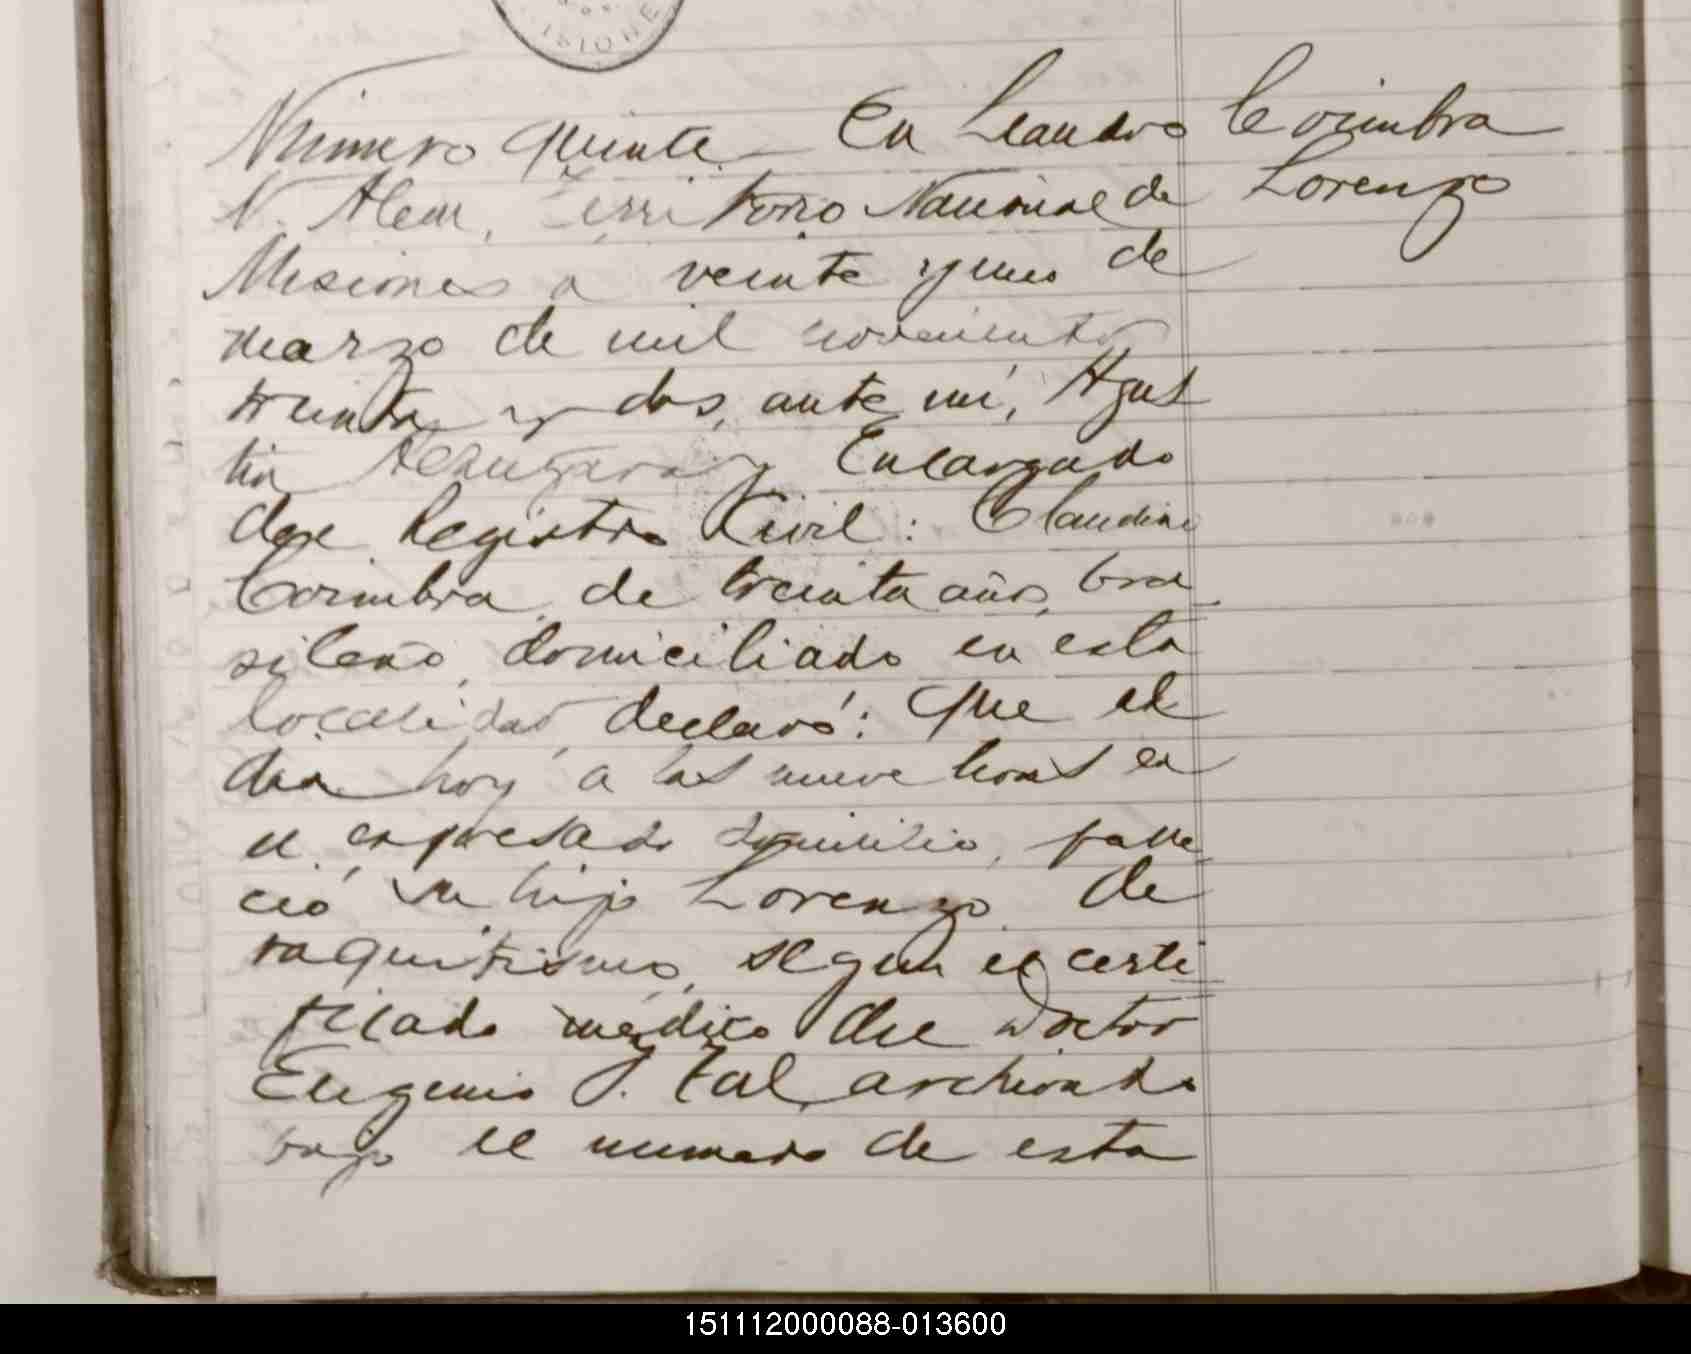 Número quinto — En Leandro
N. Alem, Territorio Nacional de
Misiones a veinte y uno de
marzo de mil novecientos
treinta y dos, ante mí, Agus
tin Encargado
del Registro Civil: Claudino
Coimbra, de treinta años, bra
sileño, domiciliado en esta
localidad, declaró: Que el
día hoy a las nueve horas en
el expresado domicilio, falle
ció su hijo Lorenzo de
raquitismo, segun el certi
ficado médico del Doctor
Eugenio archivado
bajo el numero de esta
Coimbra
Lorenzo
151112000088-013600